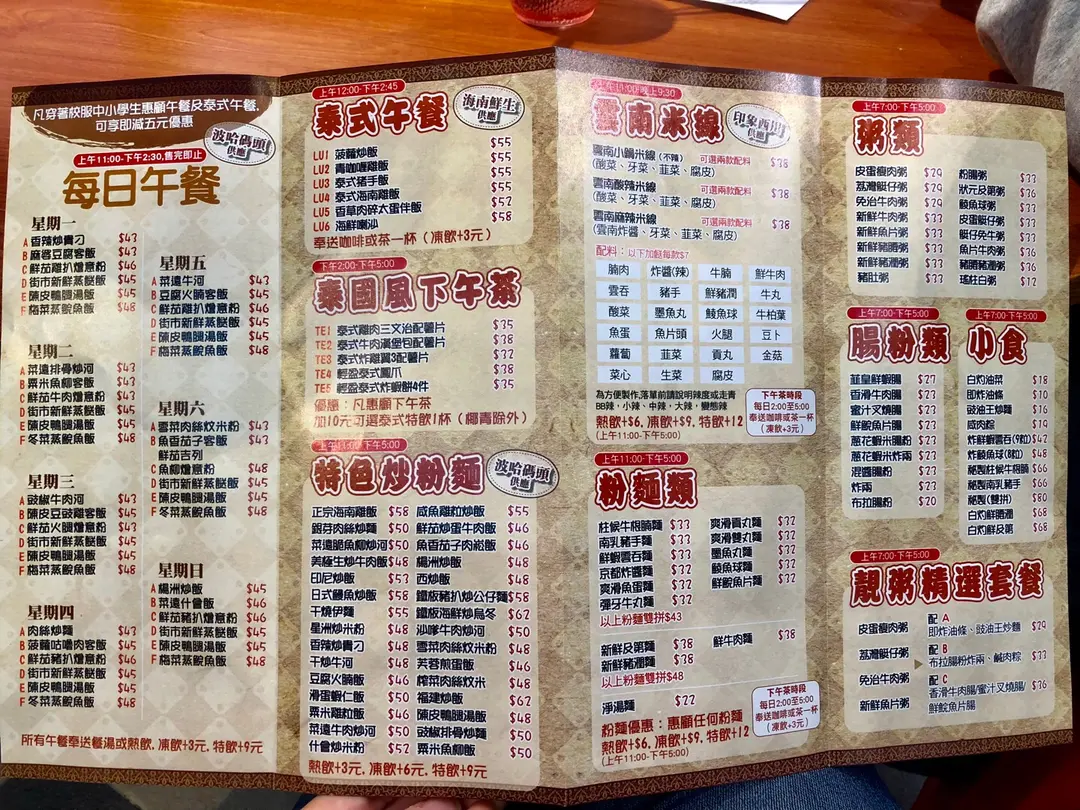 凡穿著校服中小學生惠顧午餐及泰式午餐,
可享即減五元優惠
波哈碼頭
供應
上午11:00-下午2:30,售完即止
每日午餐
星期一
A 香辣炒貴刁 $43
B 麻婆豆腐客飯 $43
C 鮮茄雞扒燴意粉 $46
D 街市新鮮蒸餸飯 $45
E 陳皮鴨腿湯飯 $45
F 梅菜蒸鯇魚飯 $48
星期二
A 菜遠排骨炒河 $43
B 粟米魚柳客飯 $43
C 鮮茄牛肉燴意粉 $43
D 街市新鮮蒸餸飯 $45
E 陳皮鴨腿湯飯 $45
F 冬菜蒸鯇魚飯 $48
星期三
A 豉椒牛肉河 $43
B 陳皮豆豉雞客飯 $45
C 鮮茄火腿燴意粉 $43
D 街市新鮮蒸餸飯 $45
E 陳皮鴨腿湯飯 $45
F 梅菜蒸鯇魚飯 $48
星期四
A 肉絲炒麵 $43
B 菠蘿咕嚕肉客飯 $45
C 鮮茄豬扒燴意粉 $46
D 街市新鮮蒸餸飯 $45
E 陳皮鴨腿湯飯 $45
F 冬菜蒸鯇魚飯 $48
星期五
A 菜遠牛河 $43
B 豆腐火腩客飯 $45
C 鮮茄雞扒燴意粉 $45
D 街市新鮮蒸餸飯 $45
E 陳皮鴨腿湯飯 $45
F 梅菜蒸鯇魚飯 $48
星期六
A 雪菜肉絲炆米粉 $43
B 魚香茄子客飯 $43
鮮茄吉列
C 魚柳燴意粉 $48
D 街市新鮮蒸餸飯 $45
E 陳皮鴨腿湯飯 $45
F 冬菜蒸鯇魚飯 $48
星期日
A 楊洲炒飯 $45
B 菜遠什會飯 $46
C 鮮茄豬扒燴意粉 $46
D 街市新鮮蒸餸飯 $45
E 陳皮鴨腿湯飯 $45
F 梅菜蒸鯇魚飯 $48
所有午餐奉送餐湯或熱飲, 凍飲+3元, 特飲+9元
上午12:00-下午2:45
泰式午餐
海南鮮生
供應
LU1 菠蘿炒飯 $55
LU2 青咖喱雞飯 $55
LU3 泰式豬手飯 $55
LU4 泰式海南雞飯 $55
LU5 香草肉碎大蛋伴飯 $52
LU6 海鮮喇沙 $58
奉送咖啡或茶一杯 (凍飲+3元)
下午2:00-下午5:00
泰國風下午茶
TE1 泰式雞肉三文治配薯片 $35
TE2 泰式牛肉漢堡包配薯片 $38
TE3 泰式炸雞翼3配薯片 $33
TE4 輕盈泰式鳳爪 $38
TE5 輕盈泰式炸蝦餅4件 $35
優惠：凡惠顧下午茶
加10元可選泰式特飲1杯 (椰青除外)
上午11:00-下午5:00
特色炒粉麵
波哈碼頭
供應
正宗海南雞飯 $58
銀芽肉絲炒麵 $50
菜遠脆魚柳炒河 $50
美極生炒牛肉飯 $48
印尼炒飯 $53
日式鰻魚炒飯 $58
干燒伊麵 $55
星洲炒米粉 $48
香辣炒貴刁 $48
干炒牛河 $48
豆腐火腩飯 $46
滑蛋蝦仁飯 $50
粟米雞粒飯 $46
菜遠牛肉炒河 $50
什會炒米粉 $52
咸魚雞粒炒飯 $55
鮮茄炒蛋牛肉飯 $46
魚香茄子肉崧飯 $46
楊洲炒飯 $48
西炒飯 $48
鐵板豬扒炒公仔麵 $58
鐵板海鮮炒烏冬 $62
沙嗲牛肉炒河 $50
雪菜肉絲炆米粉 $48
芙蓉煎蛋飯 $46
榨菜肉絲炆米 $48
福建炒飯 $62
陳皮鴨腿湯飯 $48
豉椒排骨炒麵 $50
粟米魚柳飯 $50
熱飲+3元, 凍飲+6元, 特飲+9元
上午11:00-晚上9:30
雲南米線
印象西湖
供應
雲南小鍋米線 (不辣) 可選兩款配料 $38
(酸菜、芽菜、韮菜、腐皮)
雲南酸辣米線 可選兩款配料 $38
(酸菜、芽菜、韮菜、腐皮)
雲南麻辣米線 可選兩款配料 $38
(雲南炸醬、芽菜、韮菜、腐皮)
配料：以下加餸每款$7
腩肉 炸醬(辣) 牛腩 鮮牛肉
雲吞 豬手 鮮豬潤 牛丸
酸菜 墨魚丸 鯪魚球 牛柏葉
魚蛋 魚片頭 火腿 豆卜
蘿蔔 韮菜 貢丸 金菇
菜心 生菜 腐皮
為方便製作,落單前請說明辣度或走青
BB辣，小辣、中辣，大辣，變態辣
熱飲+$6, 凍飲+$9, 特飲+12
(上午11:00-下午5:00)
下午茶時段
每日2:00至5:00
奉送咖啡或茶一杯
(凍飲+3元)
上午11:00-下午5:00
粉麵類
柱候牛根腩麵 $33
南乳豬手麵 $33
鮮蝦雲吞麵 $33
京都炸醬麵 $32
爽滑魚蛋麵 $32
彈牙牛丸麵 $32
爽滑貢丸麵 $32
爽滑雙丸麵 $32
墨魚丸麵 $32
鯪魚球麵 $32
鮮鯇魚片麵 $32
以上粉麵雙拼$43
新鮮及第麵 $38
新鮮豬潤麵 $38
鮮牛肉麵 $38
以上粉麵雙拼$48
淨湯麵 $22
粉麵優惠：惠顧任何粉麵
熱飲+$6, 凍飲+$9, 特飲+12
(上午11:00-下午5:00)
下午茶時段
每日2:00至5:00
奉送咖啡或茶一杯
(凍飲+3元)
上午7:00-下午5:00
粥類
皮蛋瘦肉粥 $29
荔灣艇仔粥 $29
免治牛肉粥 $29
新鮮牛肉粥 $33
新鮮魚片粥 $33
新鮮豬膶粥 $33
豬肚粥 $33
粉腸粥 $33
狀元及第粥 $36
鯪魚球粥 $33
皮蛋艇仔粥 $33
艇仔免牛粥 $33
魚片牛肉粥 $36
豬膶豬潤粥 $36
瑤柱白粥 $12
上午7:00-下午5:00
腸粉類
韮皇鮮蝦腸 $27
香滑牛肉腸 $23
蜜汁叉燒腸 $23
鮮鯇魚片腸 $23
蔥花蝦米腸粉 $23
蔥花蝦米炸兩 $23
混醬腸粉 $23
炸兩 $23
布拉腸粉 $20
上午7:00-下午5:00
小食
白灼油菜 $18
即炸油條 $10
豉油王炒麵 $16
咸肉粽 $19
炸鮮蝦雲吞(9粒) $42
炸鯪魚球(8粒) $48
秘製柱候牛根腩 $66
秘製南乳豬手 $66
秘製(雙拼) $80
白灼鮮豬潤 $68
白灼鮮及第 $68
上午7:00-下午5:00
靚粥精選套餐
皮蛋瘦肉粥
荔灣艇仔粥
免治牛肉粥
新鮮魚片粥
配 A
即炸油條、豉油王炒麵 $29
配 B
布拉腸粉炸兩、鹹肉粽 $33
配 C
香滑牛肉腸/蜜汁叉燒腸/
鮮鯇魚片腸 $36